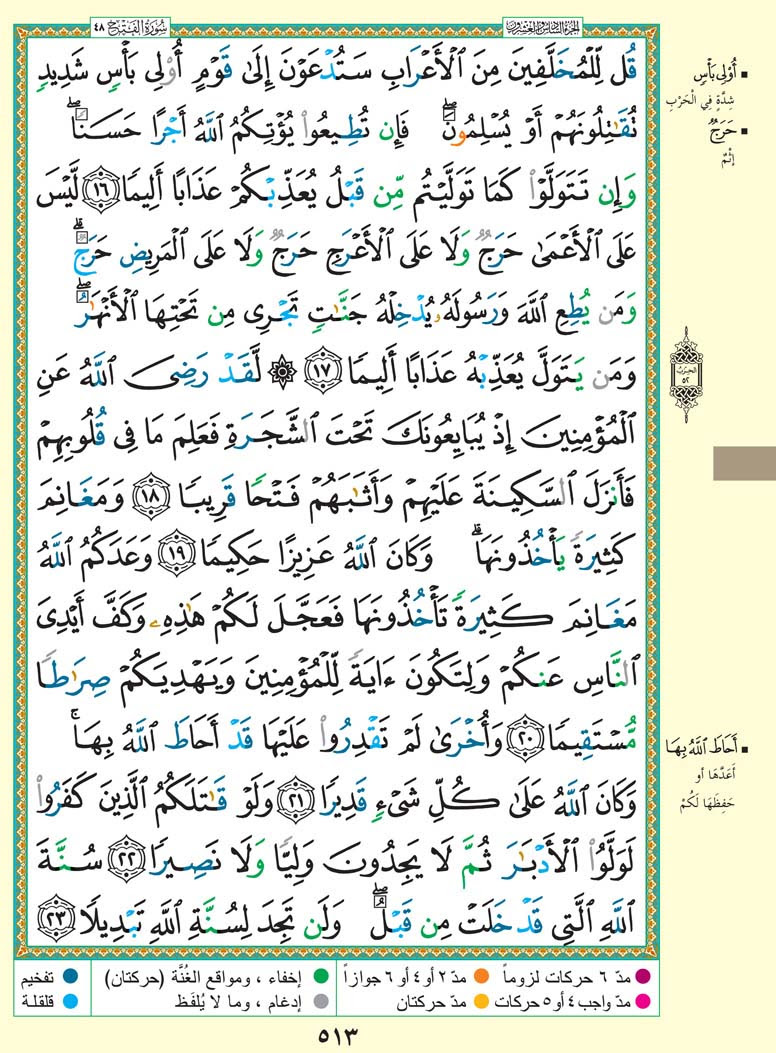 الجزء السادس والعشرون
سُورَةُ الفَتْح ٤٨
قُل لِّلْمُخَلَّفِينَ مِنَ ٱلْأَعْرَابِ سَتُدْعَوْنَ إِلَىٰ قَوْمٍ أُو۟لِى بَأْسٍ شَدِيدٍ
تُقَـٰتِلُونَهُمْ أَوْ يُسْلِمُونَ ۖ فَإِن تُطِيعُوا۟ يُؤْتِكُمُ ٱللَّهُ أَجْرًا حَسَنًا ۖ
وَإِن تَتَوَلَّوْا۟ كَمَا تَوَلَّيْتُم مِّن قَبْلُ يُعَذِّبْكُمْ عَذَابًا أَلِيمًا ١٦ لَّيْسَ
عَلَى ٱلْأَعْمَىٰ حَرَجٌ وَلَا عَلَى ٱلْأَعْرَجِ حَرَجٌ وَلَا عَلَى ٱلْمَرِيضِ حَرَجٌ ۗ
وَمَن يُطِعِ ٱللَّهَ وَرَسُولَهُۥ يُدْخِلْهُ جَنَّـٰتٍ تَجْرِى مِن تَحْتِهَا ٱلْأَنْهَـٰرُ ۖ
وَمَن يَتَوَلَّ يُعَذِّبْهُ عَذَابًا أَلِيمًا ١٧ ۞ لَّقَدْ رَضِىَ ٱللَّهُ عَنِ
ٱلْمُؤْمِنِينَ إِذْ يُبَايِعُونَكَ تَحْتَ ٱلشَّجَرَةِ فَعَلِمَ مَا فِى قُلُوبِهِمْ
فَأَنزَلَ ٱلسَّكِينَةَ عَلَيْهِمْ وَأَثَـٰبَهُمْ فَتْحًا قَرِيبًا ١٨ وَمَغَانِمَ
كَثِيرَةً يَأْخُذُونَهَا ۗ وَكَانَ ٱللَّهُ عَزِيزًا حَكِيمًا ١٩ وَعَدَكُمُ ٱللَّهُ
مَغَانِمَ كَثِيرَةً تَأْخُذُونَهَا فَعَجَّلَ لَكُمْ هَـٰذِهِۦ وَكَفَّ أَيْدِىَ
ٱلنَّاسِ عَنكُمْ وَلِتَكُونَ ءَايَةً لِّلْمُؤْمِنِينَ وَيَهْدِيَكُمْ صِرَٰطًا
مُّسْتَقِيمًا ٢٠ وَأُخْرَىٰ لَمْ تَقْدِرُوا۟ عَلَيْهَا قَدْ أَحَاطَ ٱللَّهُ بِهَا ۚ
وَكَانَ ٱللَّهُ عَلَىٰ كُلِّ شَىْءٍ قَدِيرًا ٢١ وَلَوْ قَـٰتَلَكُمُ ٱلَّذِينَ كَفَرُوا۟
لَوَلَّوُا۟ ٱلْأَدْبَـٰرَ ثُمَّ لَا يَجِدُونَ وَلِيًّا وَلَا نَصِيرًا ٢٢ سُنَّةَ
ٱللَّهِ ٱلَّتِى قَدْ خَلَتْ مِن قَبْلُ ۖ وَلَن تَجِدَ لِسُنَّةِ ٱللَّهِ تَبْدِيلًا ٢٣
أُوْلِى بَأْسٍ
شِدَّةٍ فِي الْحَرْبِ
حَرَجٌ
إِثْمٌ
الحزب
٥٢
أَحَاطَ ٱللَّهُ بِهَا
أَعَدَّهَا أو
حَفِظَهَا لَكُمْ
مدّ ٦ حركات لزوماً
مدّ ٢ أو ٤ أو ٦ جوازاً
إخفاء ، ومواقع الغُنَّة (حركتان)
تفخيم
مدّ واجب ٤ أو ٥ حركات
مدّ حركتان
إدغام ، وما لا يُلفَظ
قلقلة
٥١٣